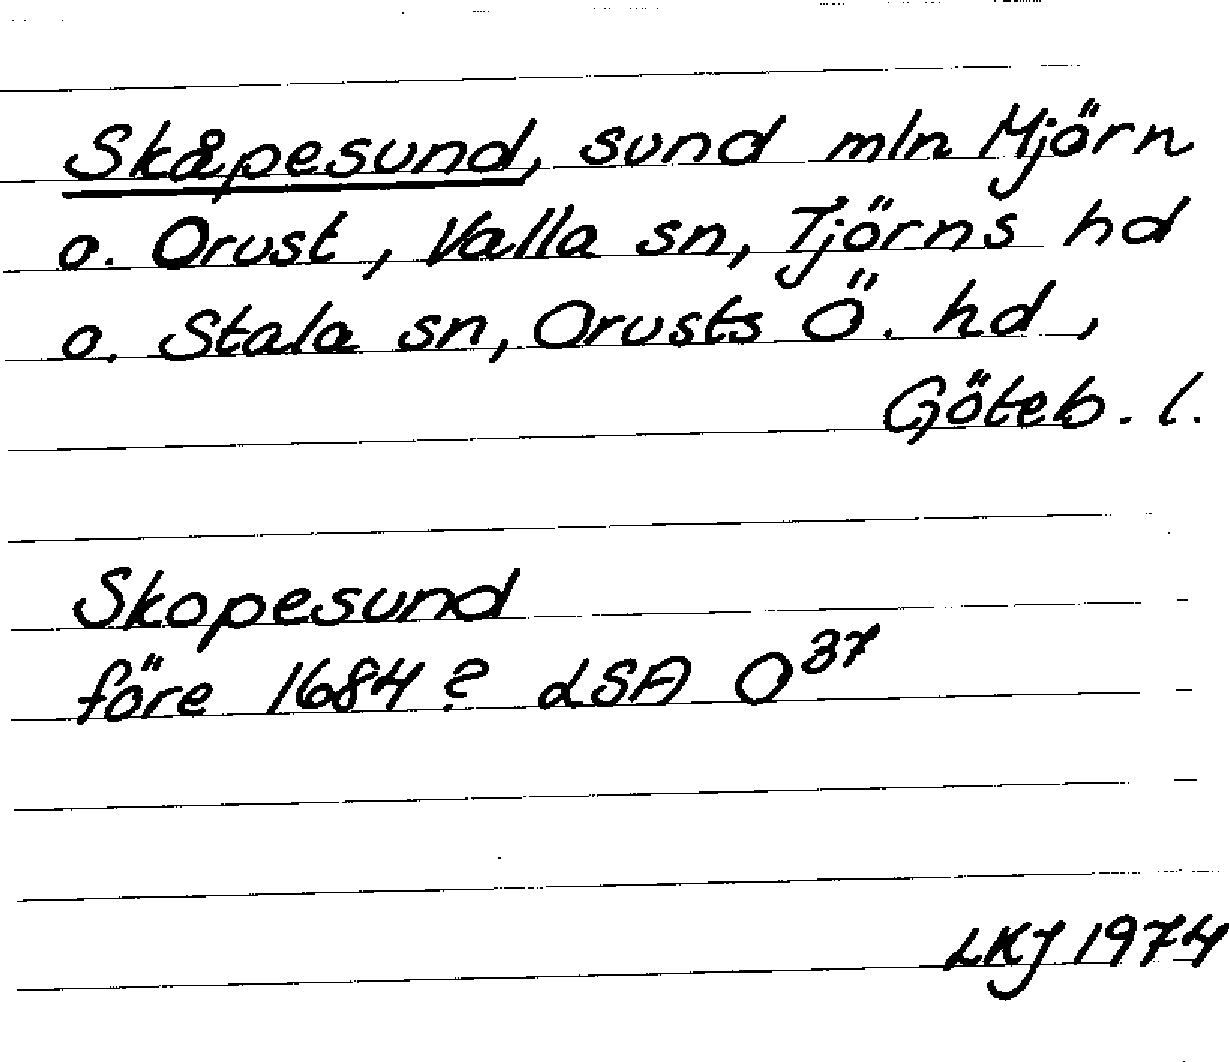 Skåpesund, sund mln Mjörn
o. Orust, Valla sn, Tjörns hd
o. Stala sn, Orusts Ö. hd,
Göteb. l.
Skopesund
före 1684? LSA O³⁷
LKJ 1974